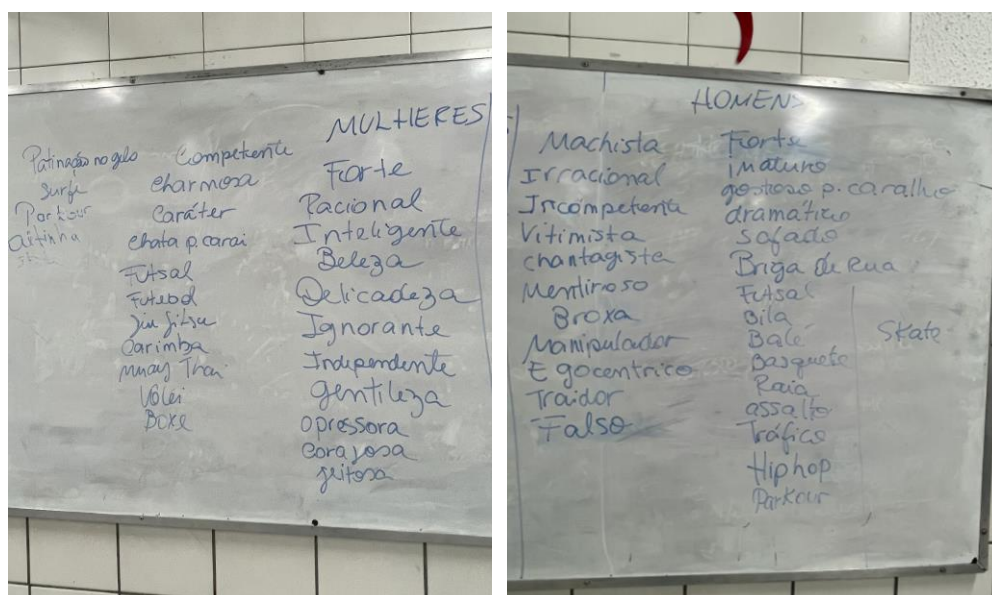 MULHERES
Patinação no gelo
Surfe
Parkour
Competente
charmosa
Caráter
chata p. carai
Futsal
Futebol
Jiu Jitsu
Carimba
Muay Thai
Vôlei
Boxe
Forte
Racional
Inteligente
Beleza
Delicadeza
Ignorante
Independente
gentileza
opressora
corajosa
jeitosa
HOMENS
Machista
Irracional
Incompetente
Vitimista
chantagista
Mentiroso
Broxa
Manipulador
Egocentrico
Traidor
Falso
Forte
imaturo
gostoso p. caralho
dramático
safado
Briga de Rua
Futsal
Bila
Balé
Basquete
Raia
assalto
Tráfico
Hip hop
Parkour
Skate